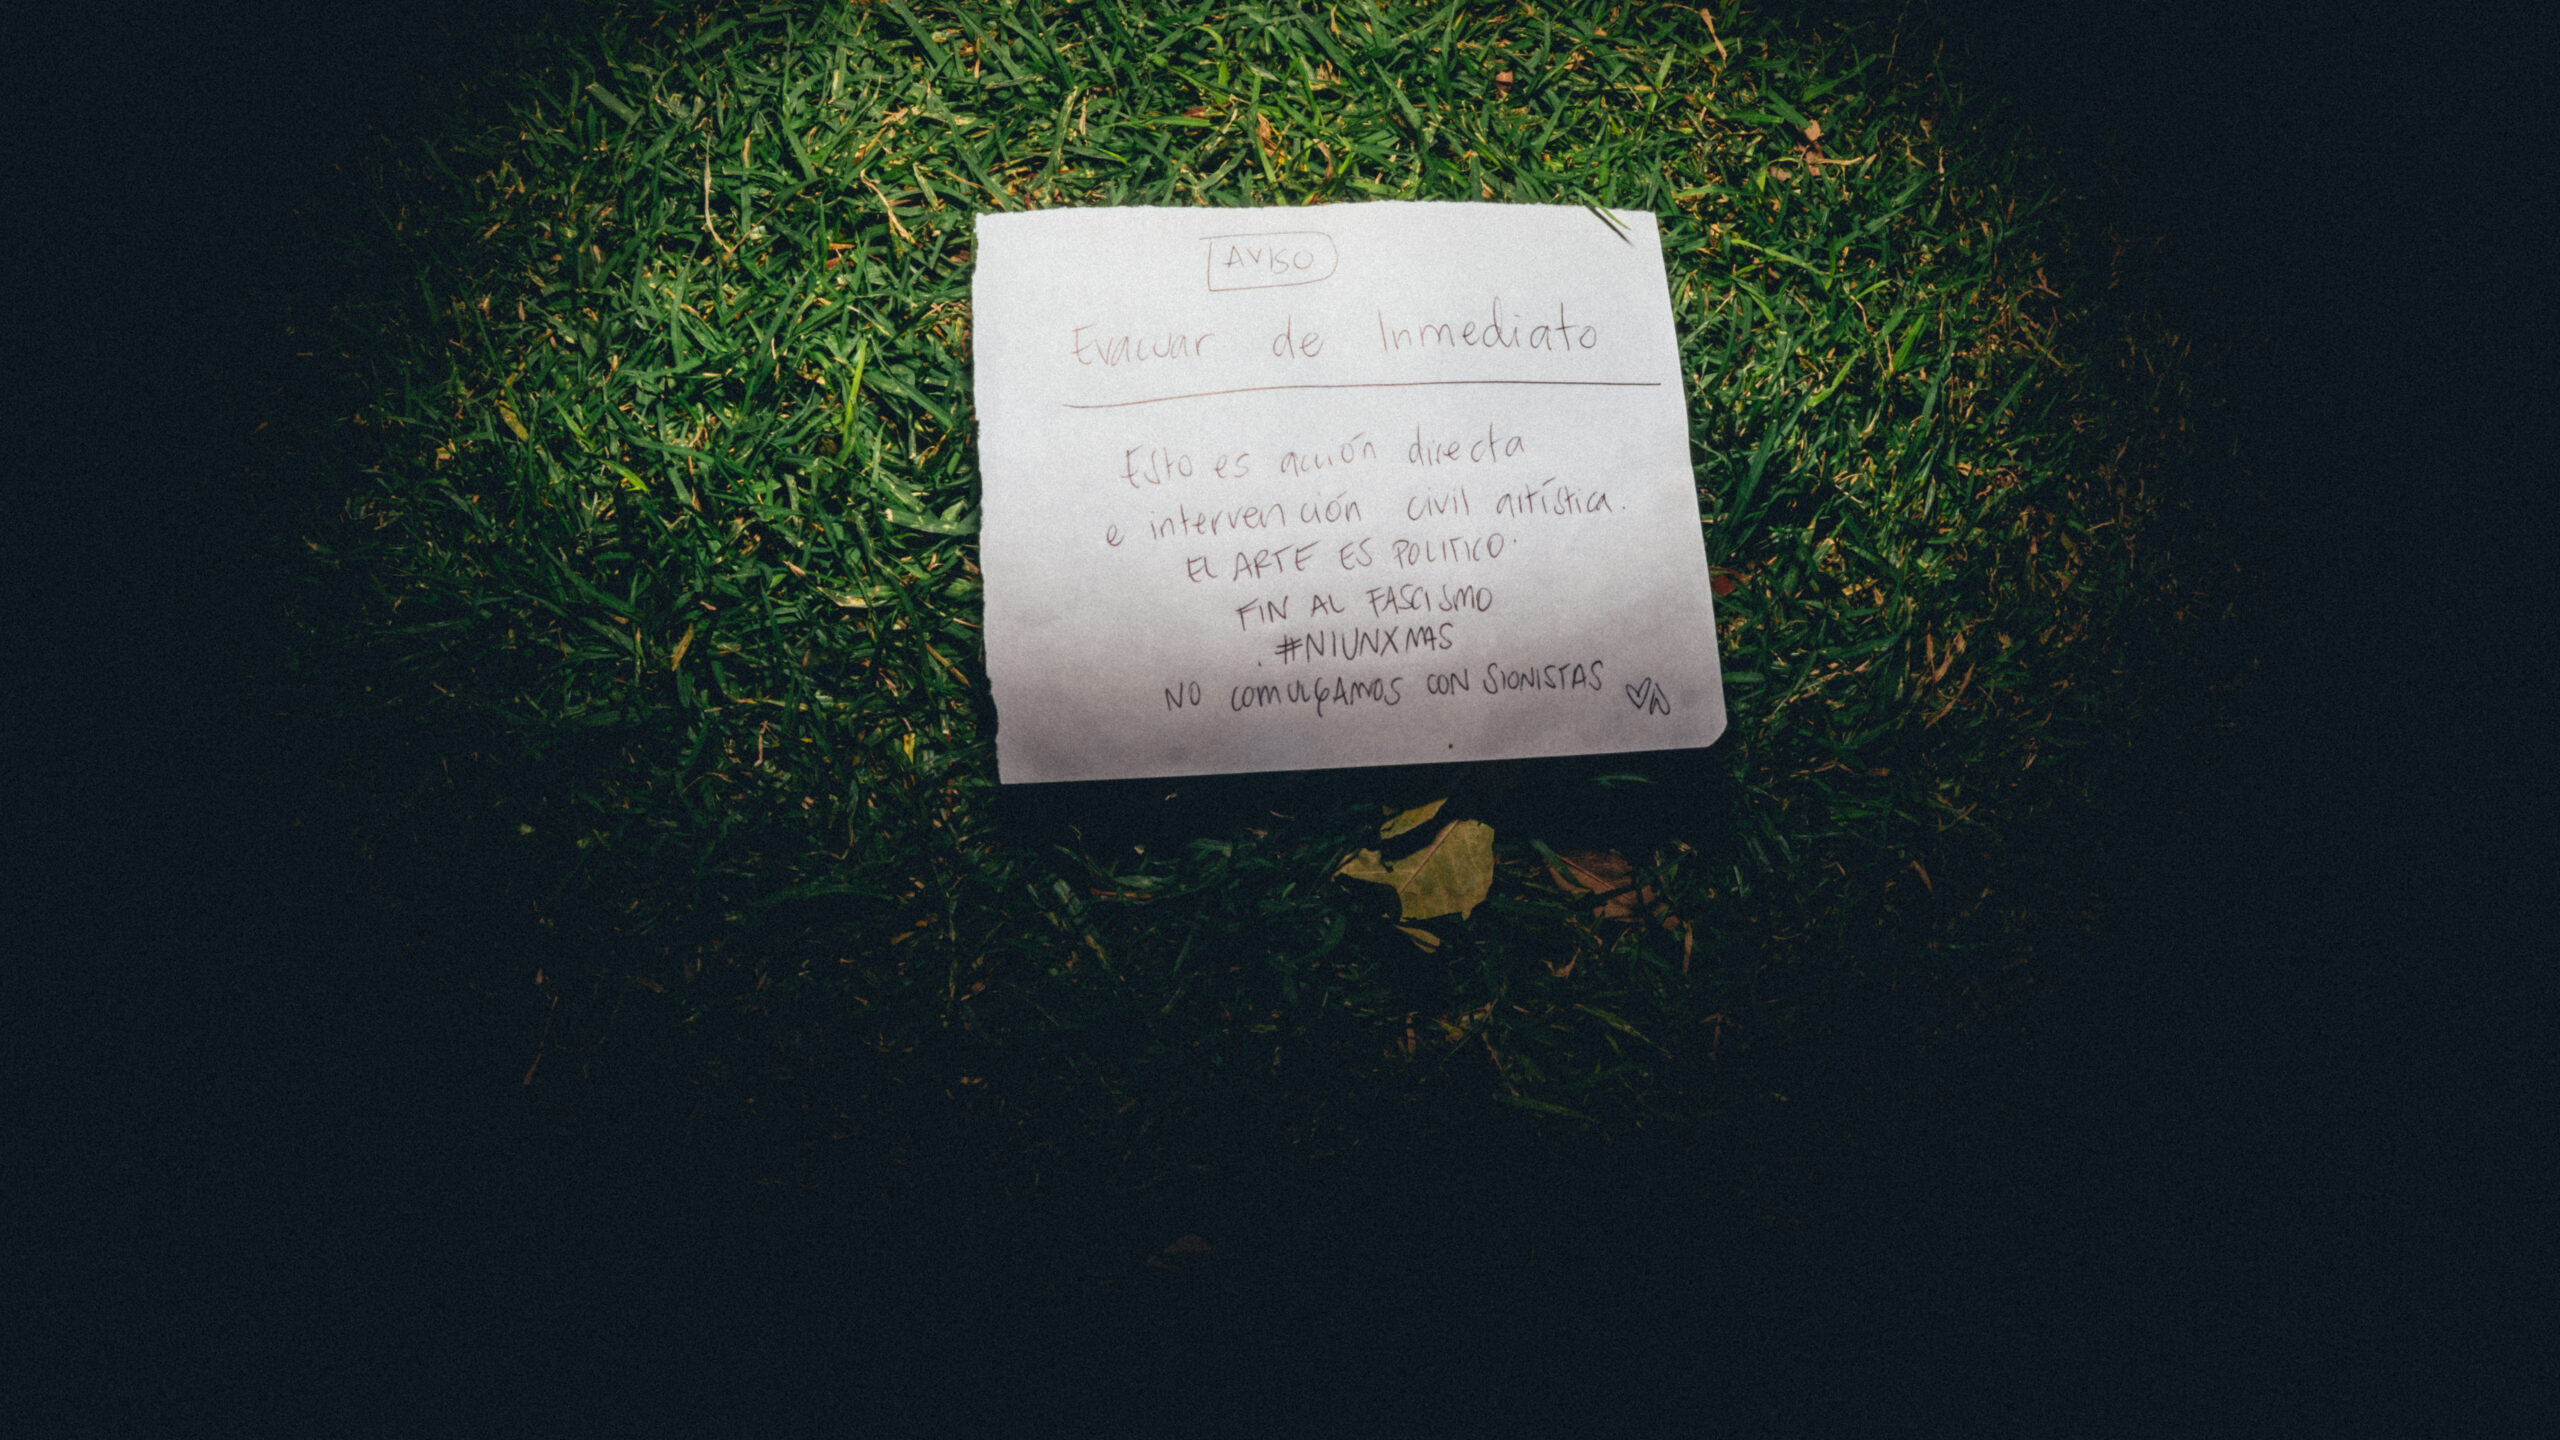 AVISO
Evacuar de Inmediato
Esto es acción directa
e intervención civil artística.
EL ARTE ES POLITICO.
FIN AL FASCISMO
. #NIUNXMAS
NO COMULGAMOS CON SIONISTAS